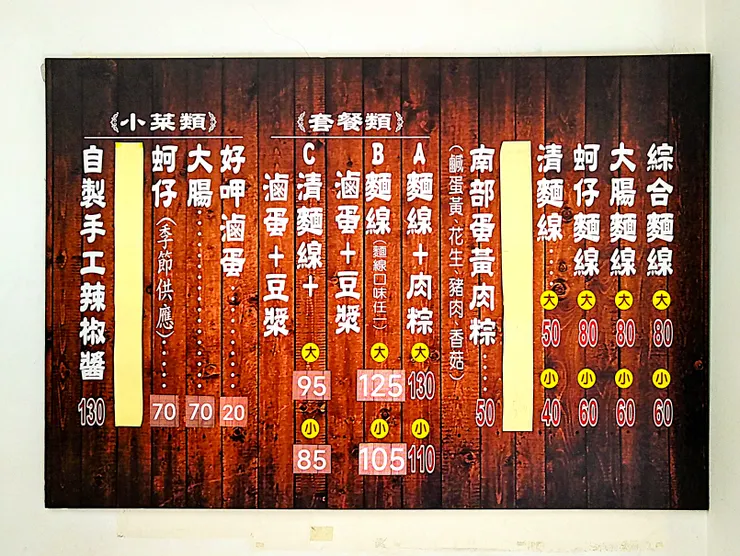 綜合麵線 大80 小60
大腸麵線 大80 小60
蚵仔麵線 大80 小60
清麵線‥‥ 大50 小40
南部蛋黃肉粽‥‥50
(鹹蛋黃、花生、豬肉、香菇)
《套餐類》
A麵線+肉粽 大130 小110
B麵線(麵線口味任一) 大125 小105
滷蛋+豆漿
C清麵線+ 大95 小85
滷蛋+豆漿
《小菜類》
好呷滷蛋‥‥‥20
大腸‥‥‥‥‥70
蚵仔(季節供應)‥‥70
自製手工辣椒醬130